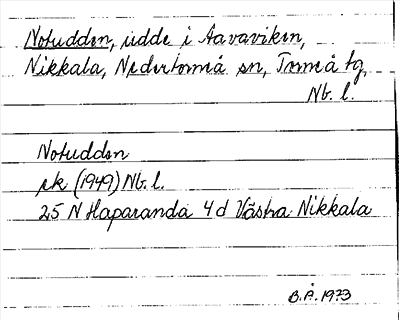 Notudden, udde i Aavaviken,
Nikkala, Nedertorneå sn, Torneå tg,
Nb. l.
Notudden
ek (1949) Nb. l.
25 N Haparanda 4 d Västra Nikkala
B.Å. 1973